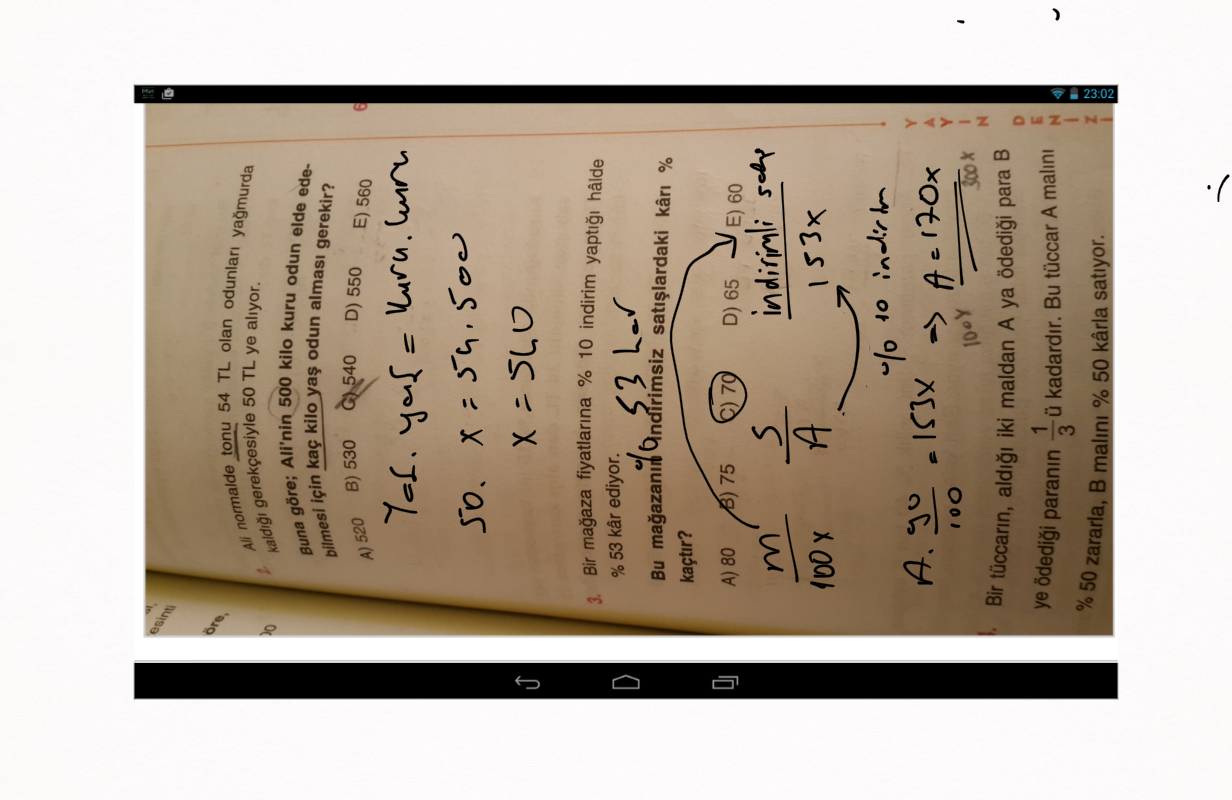 23:02
esinti
öre,
00
6
2.
Ali normalde tonu 54 TL olan odunları yağmurda
kaldığı gerekçesiyle 50 TL ye alıyor.
Buna göre; Ali'nin 500 kilo kuru odun elde ede-
bilmesi için kaç kilo yaş odun alması gerekir?
A) 520 B) 530 C) 540 D) 550 E) 560
Yaş. yaş = kuru. kuru
50. x = 54.500
x = 540
3. Bir mağaza fiyatlarına % 10 indirim yaptığı hâlde
% 53 kâr ediyor.
% 53 kar
Bu mağazanın indirimsiz satışlardaki kârı %
kaçtır?
A) 80 B) 75 C) 70 D) 65 E) 60
m S indirimli satış
100x A 153x
% 10 indirim
A. 90/100 = 153x => A = 170x
100Y 300X
YAYIN DENİZİ
4. Bir tüccarın, aldığı iki maldan A ya ödediği para B
ye ödediği paranın 1/3 ü kadardır. Bu tüccar A malını
% 50 zararla, B malını % 50 kârla satıyor.